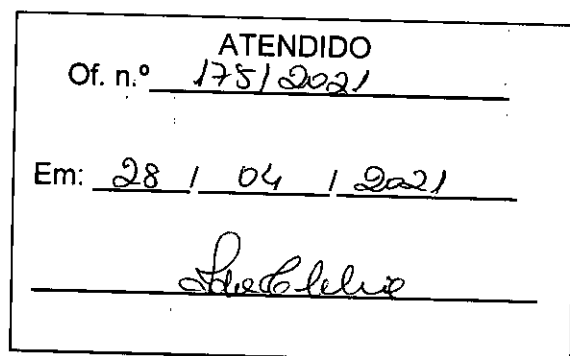 ATENDIDO
Of. n.º 175/2021
Em: 28 / 04 / 2021